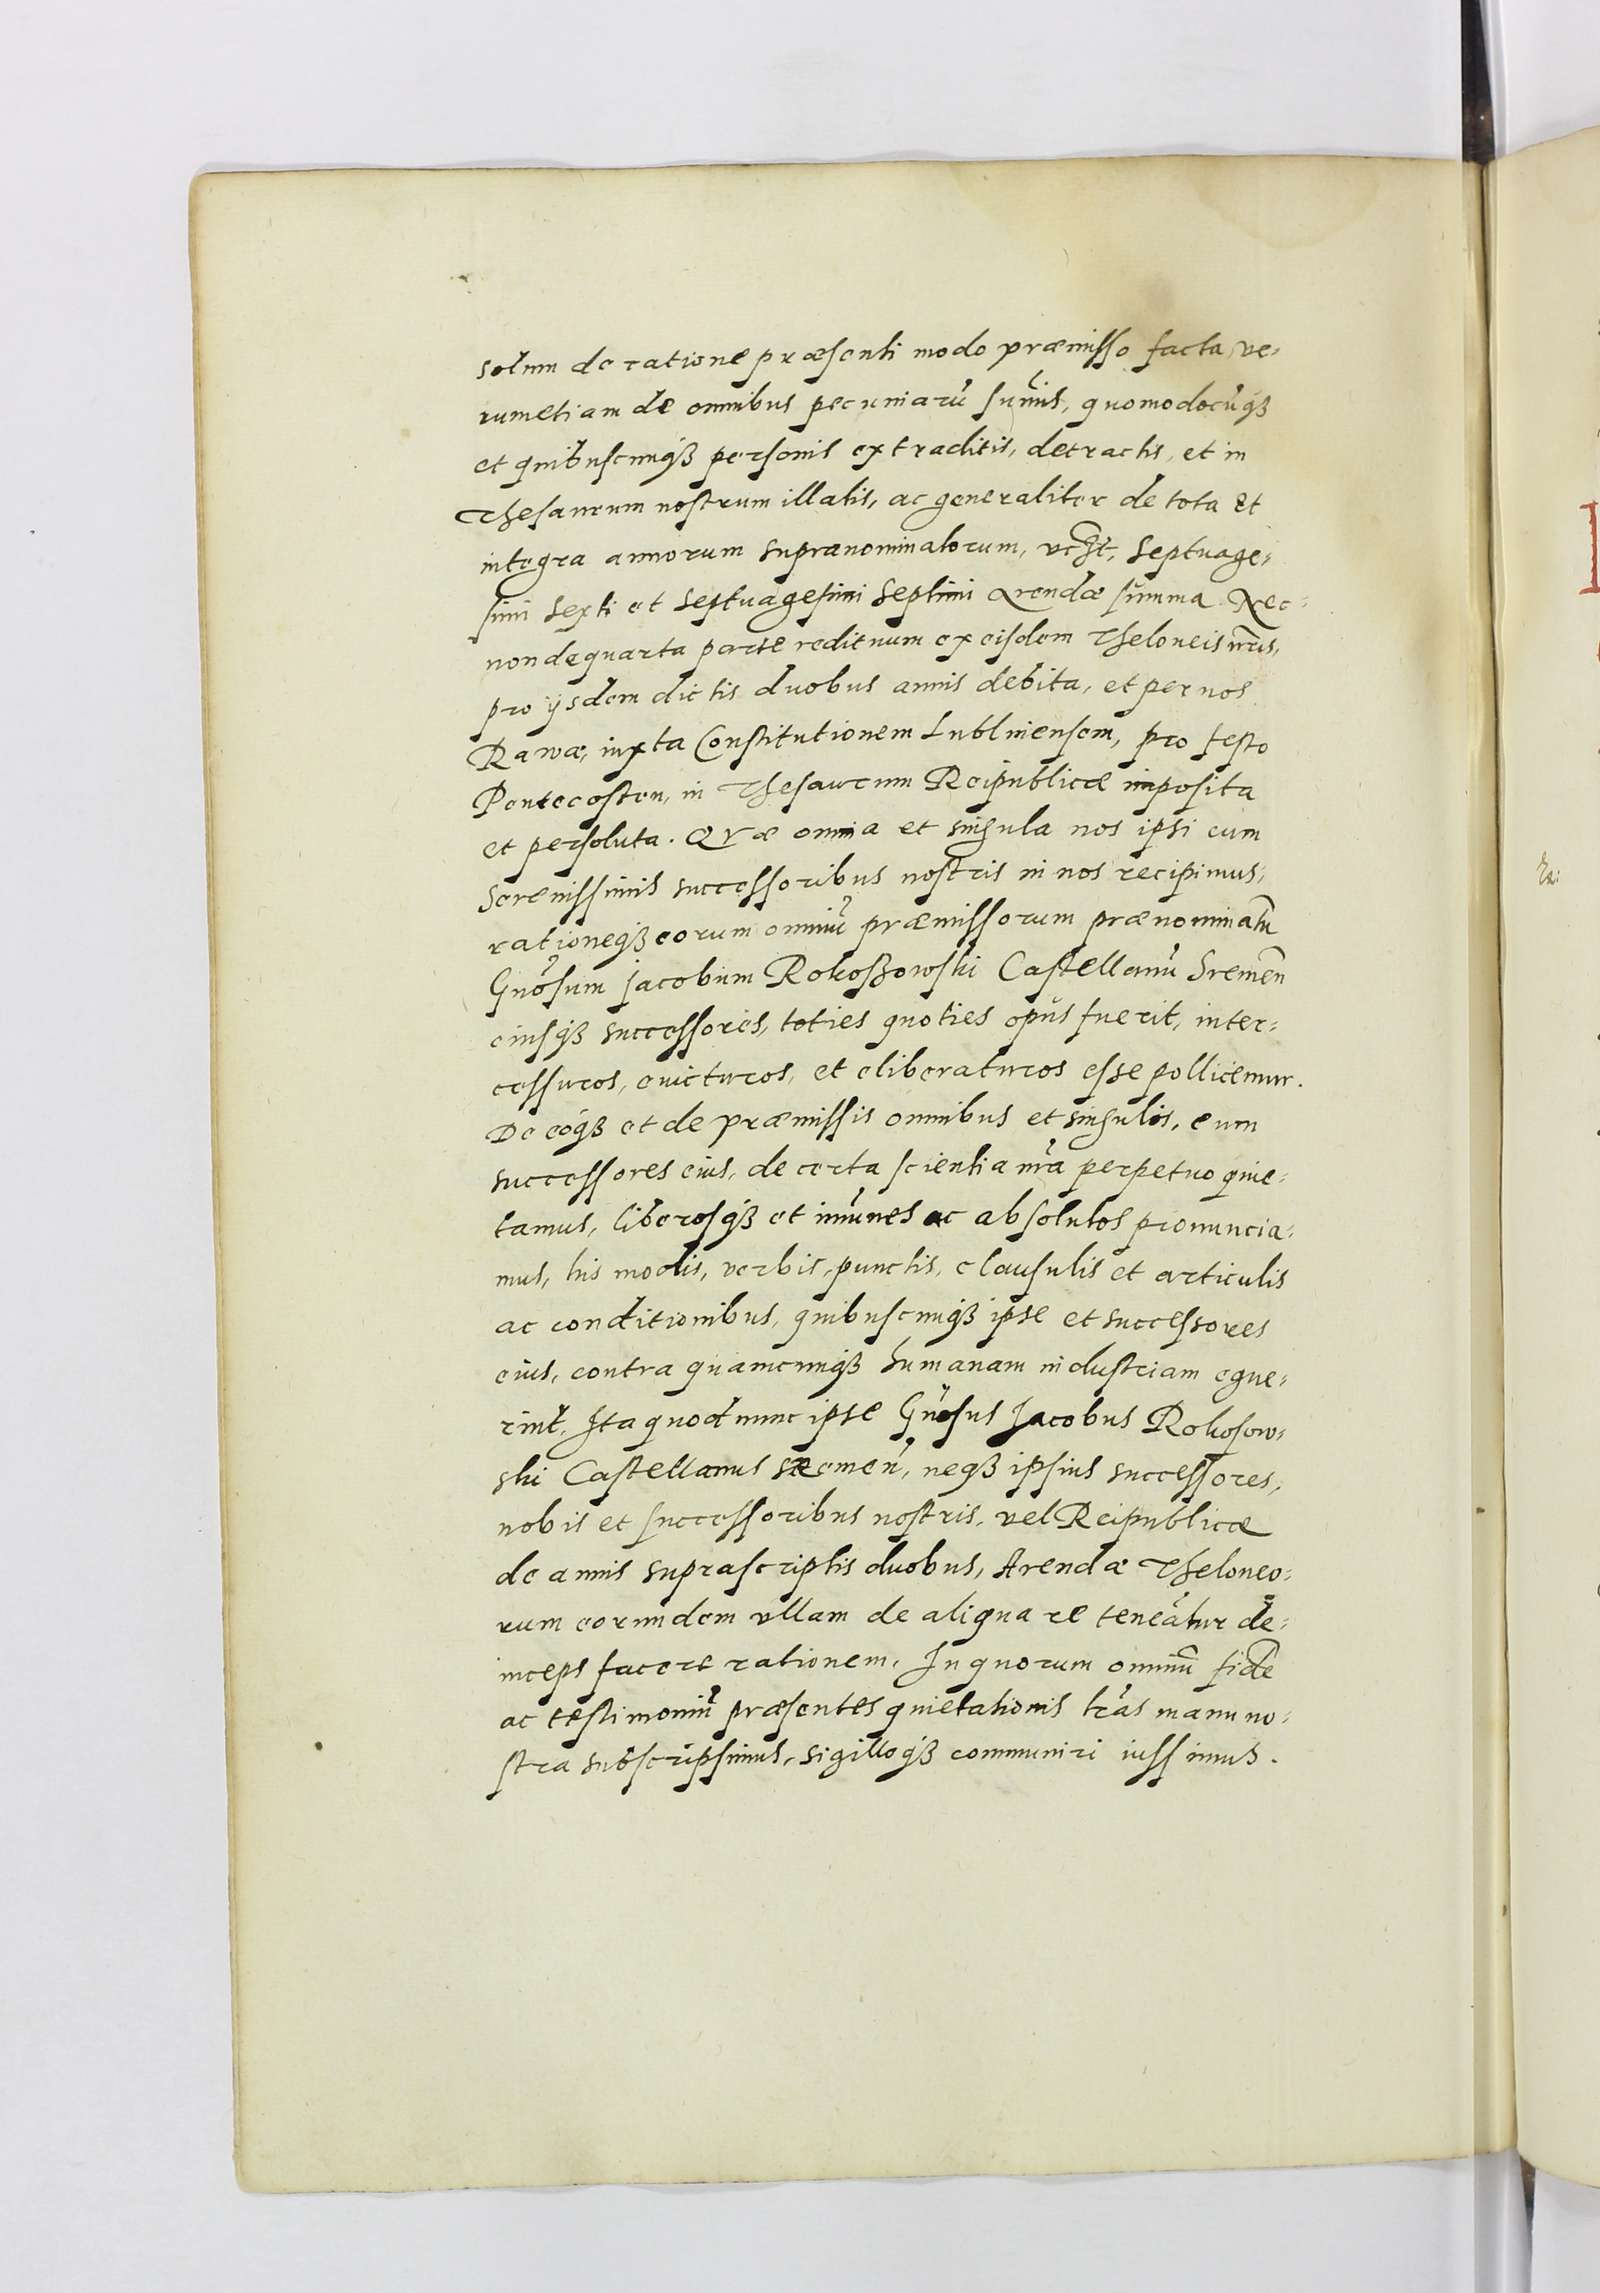 solum de ratione præsenti modo præmisso facta, ve-
rumetiam de omnibus pecuniarũ sum̃is, quomodocũq3
et quibuscunq3 personis extraditis, detractis, et in
Thesaurum nostrum illatis, ac generaliter de tota et
integra annorum supranominatorum, vꝫt, Septuage-
simi sexti et septuagesimi septimi Arendæ summa. Nec-
non de quarta parte redituum ex eisdem Theloneis nr̃is,
pro ijsdem dictis duobus annis debita, et per nos
Rawæ, iuxta Constitutionem Lublinensem, pro festo
Pentecosten, in Thesaurum Reipublicæ imposita
et persoluta. Qvæ omnia et singula nos ipsi cum
Serenissimis successoribus nostris in nos recipimus,
rationeq3 eorum omniũ præmissorum prænominatũ
Gñosum Jacobum Rokoszowski Castellanũ Sremeñ
eiusq3 successores, toties quoties opus fuerit, inter-
cessuros, euicturos, et eliberaturos esse pollicemur.
De eoq3 et de præmissis omnibus et singulis, eum
successores eius, de certa scientia nr̃a perpetuo quie-
tamus, liberosq3 et im̃unes ac absolutos pronuncia-
mus, his modis, verbis, punctis, clausulis et articulis
ac conditionibus, quibuscunq3 ipse et successores
eius, contra quamcunq3 humanam industriam egue-
rint. Ita quod nunc ipse Gñosus Jacobus Rokosow-
ski Castellanus Sremeñ, neq3 ipsius successores,
nobis et successoribus nostris, vel Reipublicæ
de annis suprascriptis duobus, Arendæ Theloneo-
rum eorundem vllam de aliqua re teneãtur de-
inceps facere rationem. In quorum omniũ fidẽ
ac testimoniũ præsentes quietationis lr̃as manu no-
stra subscripsimus, sigilloq3 communiri iussimus.